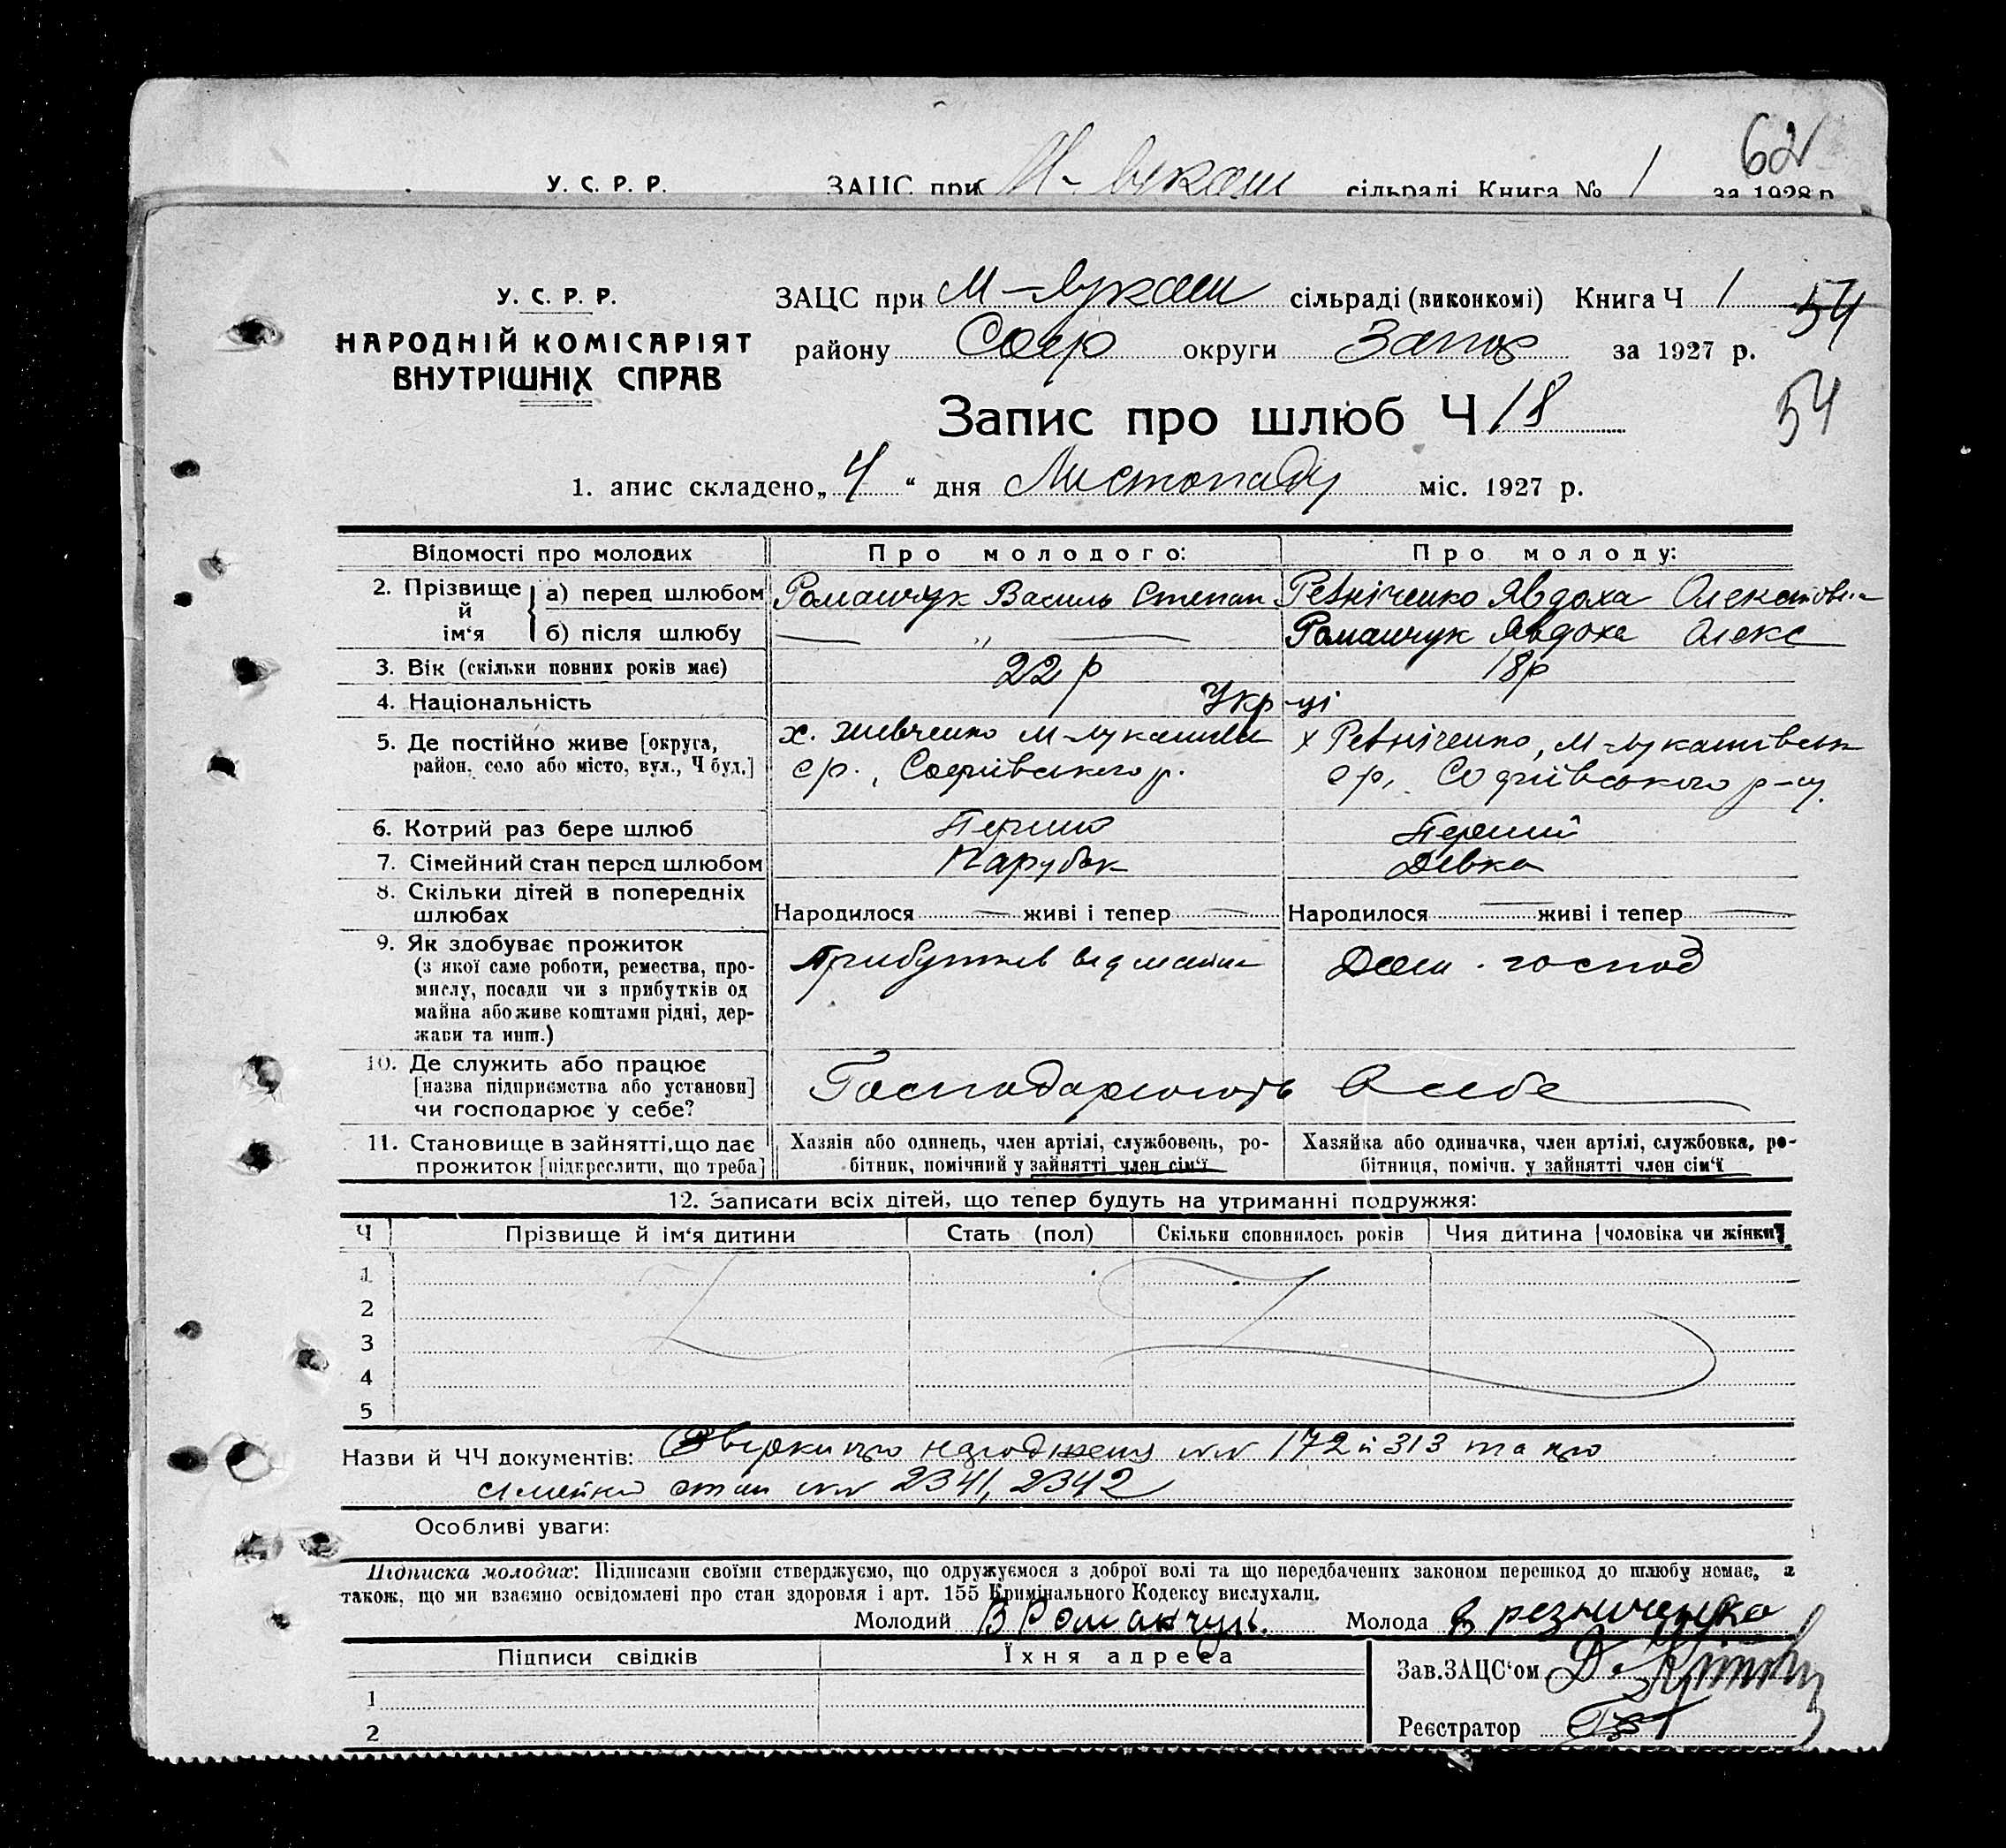 62
У. С. Р. Р. ЗАЦС при М-Лукаш сільраді Книга № 1 за 1928 р.
У. С. Р. Р.
НАРОДНІЙ КОМІСАРІЯТ
ВНУТРІШНІХ СПРАВ
ЗАЦС при М-Лукаш сільраді (виконкомі) Книга Ч 1 54
району Соф округи Запор за 1927 р.
Запис про шлюб Ч 18 54
1. апис складено „4“ дня Листопаду міс. 1927 р.
Відомості про молодих Про молодого: Про молоду:
2. Прізвище й ім'я а) перед шлюбом Романчук Василь Степан Резніченко Явдоха
б) після шлюбу — " — Романчук Явдоха Олекс
3. Вік (скільки повних років має) 22 р 18 р
4. Національність Укр-ці
5. Де постійно живе [округа, х. Шевченко М-Лукашівськ х Резніченко, М-Лукашівськ
район, село або місто, вул., Ч буд.] с/р., Софіївського р. с/р, Софіївського р-ну.
6. Котрий раз бере шлюб Перший Перший
7. Сімейний стан перед шлюбом Парубок Дівка
8. Скільки дітей в попередніх
шлюбах Народилося — живі і тепер — Народилося — живі і тепер —
9. Як здобуває прожиток Прибутків від майна Дом. господ
(з якої саме роботи, ремества, про-
мислу, посади чи з прибутків од
майна або живе коштами рідні, дер-
жави та инш.)
10. Де служить або працює
[назва підприємства або установи] Господарюють в себе
чи господарює у себе?
11. Становище в зайнятті, що дає Хазяін або одинець, член артілі, службовець, ро- Хазяйка або одиначка, член артілі, службовка, ро-
прожиток [підкреслити, що треба] бітник, помічний у зайнятті член сім'ї бітниця, помічн. у зайнятті член сім'ї
12. Записати всіх дітей, що тепер будуть на утриманні подружжя:
Ч Прізвище й ім'я дитини Стать (пол) Скільки сповнилось років Чия дитина [чоловіка чи жінки]
1
2
3
4
5
Назви й ЧЧ документів: про народження №№ 172 й 313 та про
сімейний стан №№ 2341, 2342
Особливі уваги:
Підписка молодих: Підписами своїми стверджуємо, що одружуємося з доброї волі та що передбачених законом перешкод до шлюбу немає, а
також, що ми взаємно освідомлені про стан здоровля і арт. 155 Кримінального Кодексу вислухали.
Молодий В Романчук. Молода резниченко
Підписи свідків Їхня адреса Зав.ЗАЦС'ом
1
2 Реєстратор